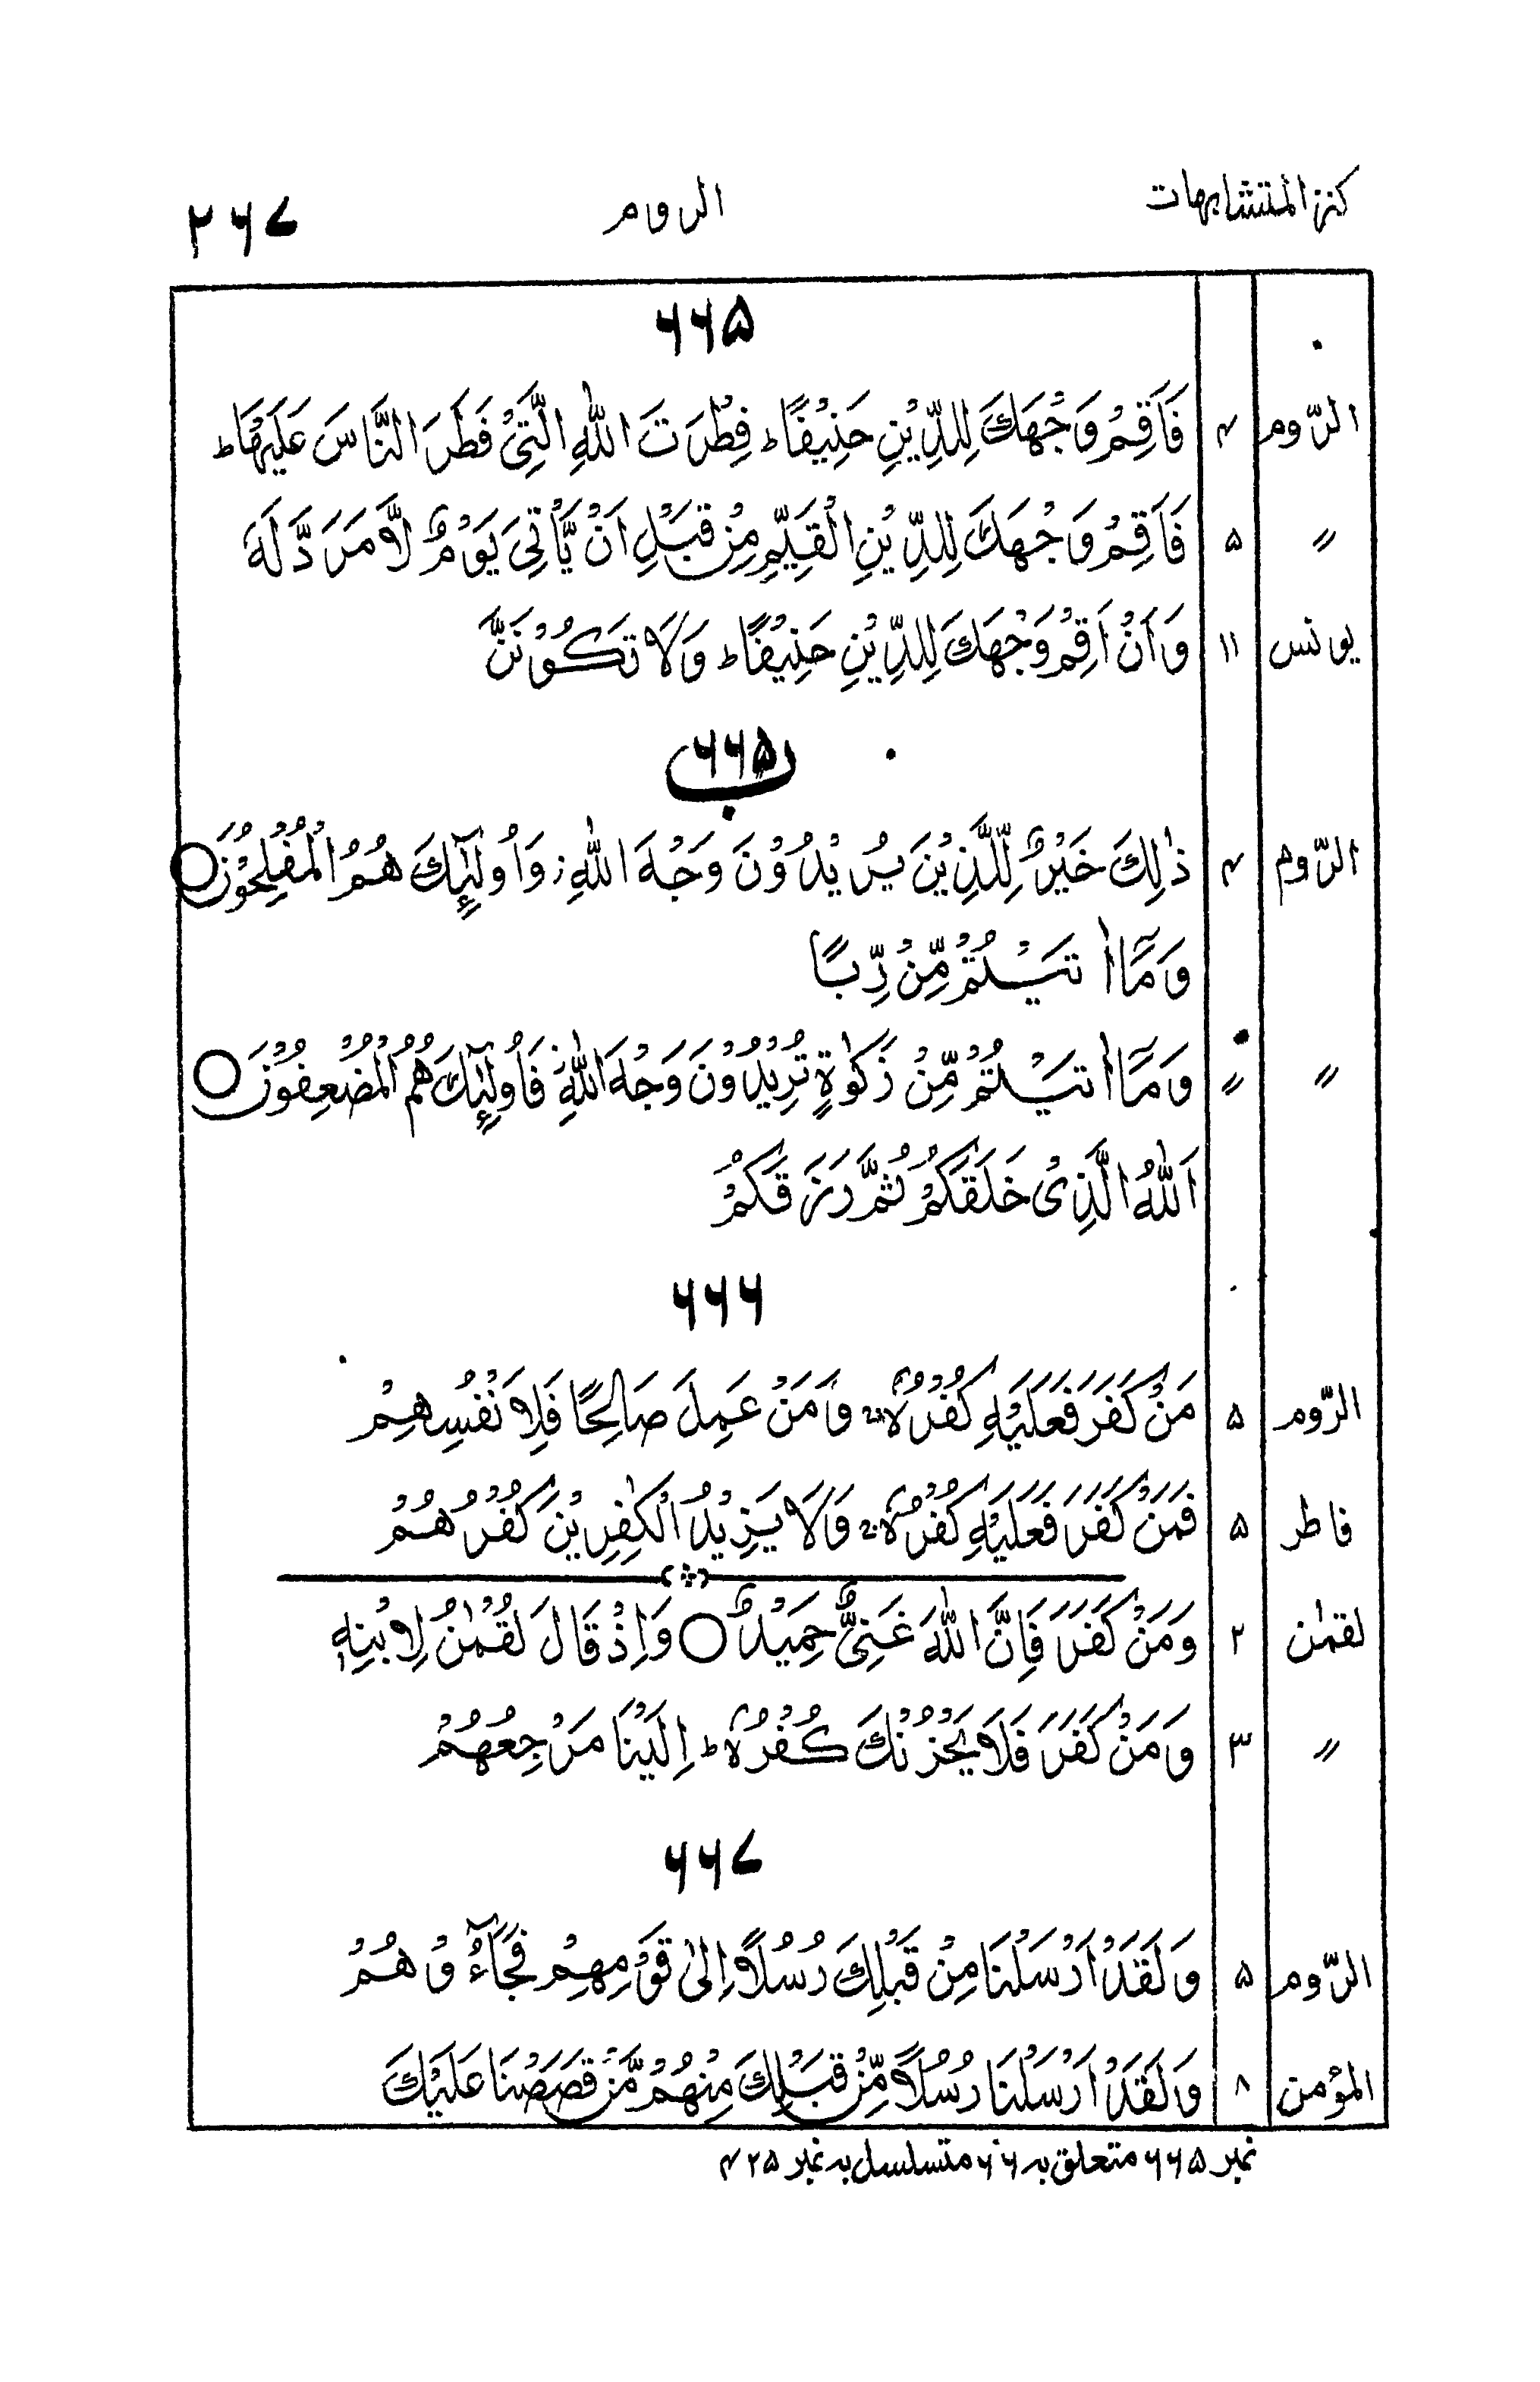 كنز المتشابهات الروم ۲۶۷
۶۶۵
الرّوم ۴ فَاَقِمْ وَجْهَكَ لِلدِّيْنِ حَنِيْفًا ؕ فِطْرَتَ اللّٰهِ الَّتِىْ فَطَرَ النَّاسَ عَلَيْهَا ؕ
〃 ۵ فَاَقِمْ وَجْهَكَ لِلدِّيْنِ الْقَيِّمِ مِنْ قَبْلِ اَنْ يَّاْتِىَ يَوْمٌ لَّا مَرَدَّ لَهٗ
يونس ۱۱ وَاَنْ اَقِمْ وَجْهَكَ لِلدِّيْنِ حَنِيْفًا ؕ وَلَا تَكُوْنَنَّ
۶۶۵ ب
الرّوم ۴ ذٰلِكَ خَيْرٌ لِّلَّذِيْنَ يُرِيْدُوْنَ وَجْهَ اللّٰهِ ز وَاُولٰٓئِكَ هُمُ الْمُفْلِحُوْنَ ○
وَمَآ اٰتَيْتُمْ مِّنْ رِّبًا
〃 〃 وَمَآ اٰتَيْتُمْ مِّنْ زَكٰوةٍ تُرِيْدُوْنَ وَجْهَ اللّٰهِ فَاُولٰٓئِكَ هُمُ الْمُضْعِفُوْنَ ○
اَللّٰهُ الَّذِىْ خَلَقَكُمْ ثُمَّ رَزَقَكُمْ
۶۶۶
الرّوم ۵ مَنْ كَفَرَ فَعَلَيْهِ كُفْرُهٗ ۚ وَمَنْ عَمِلَ صَالِحًا فَلِاَنْفُسِهِمْ
فاطر ۵ فَمَنْ كَفَرَ فَعَلَيْهِ كُفْرُهٗ ۚ وَلَا يَزِيْدُ الْكٰفِرِيْنَ كُفْرُهُمْ
لقمٰن ۲ وَمَنْ كَفَرَ فَاِنَّ اللّٰهَ غَنِىٌّ حَمِيْدٌ ○ وَاِذْ قَالَ لُقْمٰنُ لِابْنِهٖ
〃 ۳ وَمَنْ كَفَرَ فَلَا يَحْزُنْكَ كُفْرُهٗ ؕ اِلَيْنَا مَرْجِعُهُمْ
۶۶۷
الرّوم ۵ وَلَقَدْ اَرْسَلْنَا مِنْ قَبْلِكَ رُسُلًا اِلٰى قَوْمِهِمْ فَجَآءُوْهُمْ
المؤمن ۸ وَلَقَدْ اَرْسَلْنَا رُسُلًا مِّنْ قَبْلِكَ مِنْهُمْ مَّنْ قَصَصْنَا عَلَيْكَ
نمبر ۶۶۵ متعلق بہ ۶۰۶ متسلسل بہ نمبر ۴۲۵